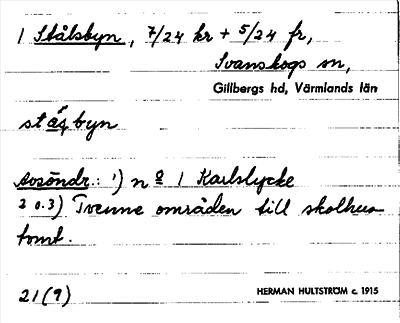 1 Stålsbyn, 7/24 kr + 5/24 fr,
Svanskogs sn,
Gillbergs hd, Värmlands län
ståsbyn
Avsöndr.: 1) nº 1 Karlslycke
2 o. 3) Tvenne områden till skolhus-
tomt.
21(9)
HERMAN HULTSTRÖM c. 1915